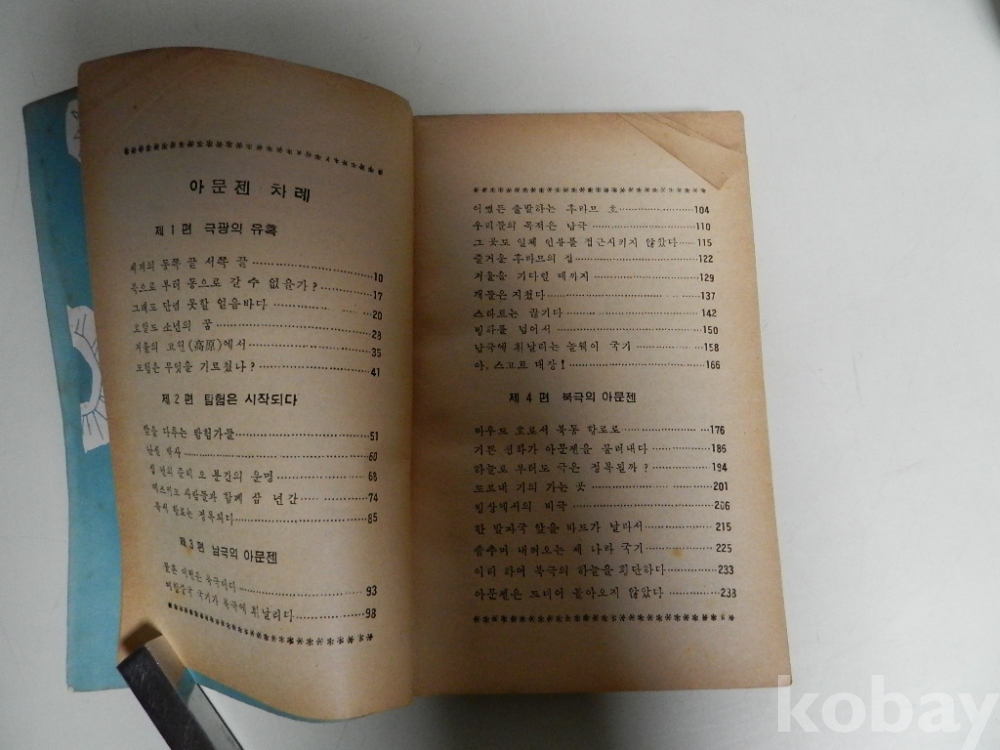 아문젠 차례
제 1 편 극광의 유혹
세계의 동쪽 끝 서쪽 끝 10
북으로 부터 동으로 갈 수 없을가? 17
그래도 단념 못할 얼음바다 20
로알드 소년의 꿈 28
겨울의 고원(高原)에서 35
무엇을 기르쳤나? 41
제 2 편 탐험은 시작되다
탐험가들 51
난센 박사 60
준비 오 분간의 운명 68
에스키모 사람들과 함께 삼 년간 74
북서 항로는 정복되다 85
제 3 편 남극의 아문젠
물론 이번은 북극이다 93
국기가 북극에 휘날리다 98
어쨌든 출발하는 후라므 호 104
우리들의 목적은 남극 110
그 곳도 일체 인물을 접근시키지 않았다 115
즐거울 후라므의 집 122
겨울을 기다릴 때까지 129
개들은 지쳤다 137
스타트는 끊기다 142
빙하를 넘어서 150
남극에 휘날리는 놀웨이 국기 158
아, 스코트 대장! 166
제 4 편 북극의 아문젠
마우드 호로서 북동 항로로 176
기쁜 전화가 아문젠을 불러내다 186
하늘로 부터도 극은 정복될까? 194
도르네 기의 가는 곳 201
빙상에서의 비극 206
한 발자국 앞을 바드가 날라서 215
춤추며 내려오는 세 나라 국기 225
이리 하여 북극의 하늘을 횡단하다 233
아문젠은 드디어 돌아오지 않았다 238
kobay